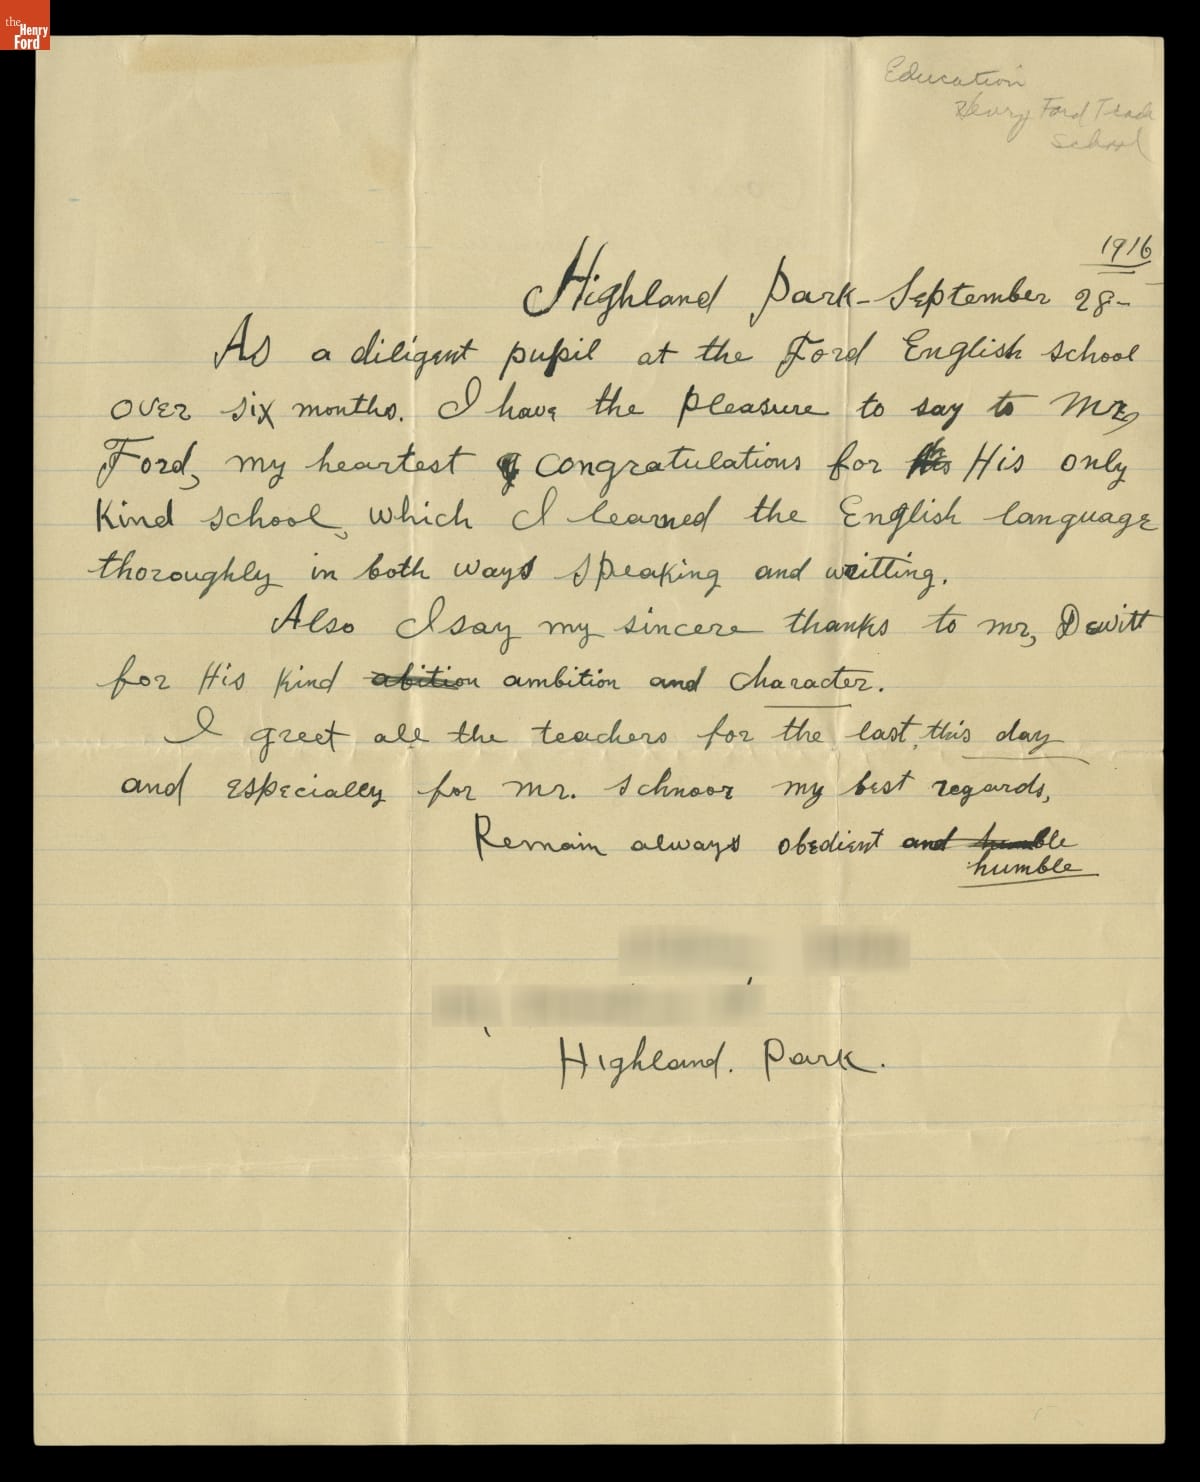 the
Henry
Ford
Education
Henry Ford Trade
School
1916
Highland Park - September 28 -
As a diligent pupil at the Ford English school
over six months. I have the pleasure to say to Mr,
Ford, my heartest congratulations for his His only
Kind school, which I learned the English language
thoroughly in both ways speaking and writting.
Also I say my sincere thanks to mr, Dewitt
for His Kind abition ambition and character.
I greet all the teachers for the last, this day
and especially for mr. Schnoor my best regards,
Remain always obedient and humble
humble
Highland. Park.